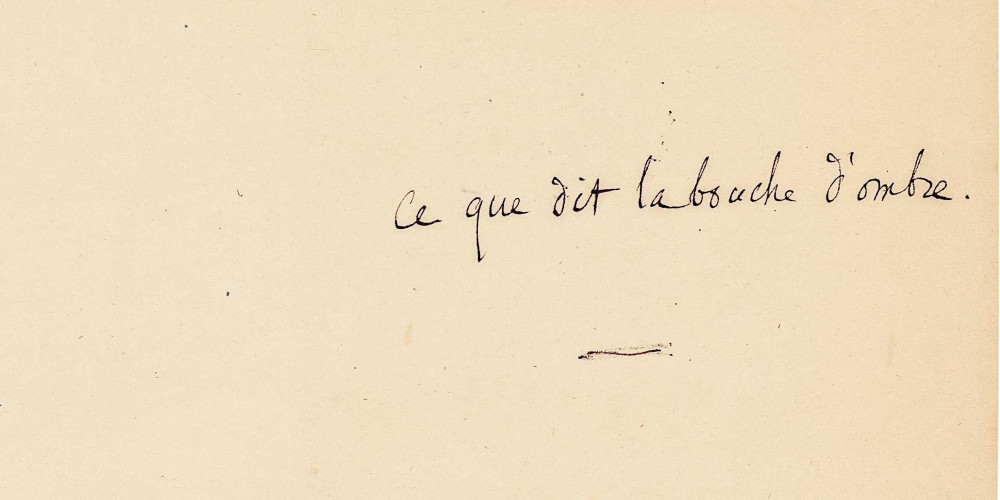 Ce que dit la bouche d'ombre.